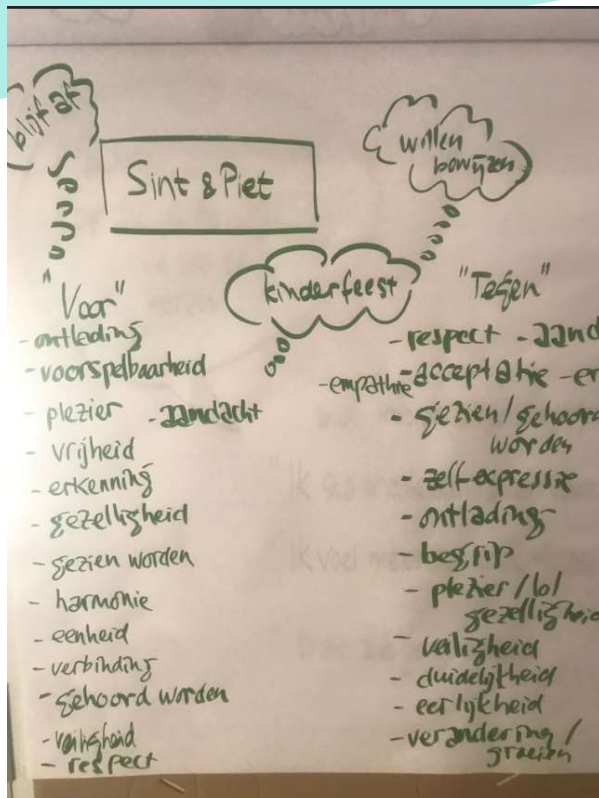 blijf af
Sint & Piet
willen
bewijzen
kinderfeest
"Voor"
- ontlading
- voorspelbaarheid
- plezier - aandacht
- vrijheid
- erkenning
- gezelligheid
- gezien worden
- harmonie
- eenheid
- verbinding
- gehoord worden
- veiligheid
- respect
"Tegen"
- respect - aand
- empathie - acceptatie - er
- gezien / gehoord
worden
- zelf-expressie
- ontlading
- begrip
- plezier / lol
gezelligheid
- veiligheid
- duidelijkheid
- eerlijkheid
- verandering /
groeien